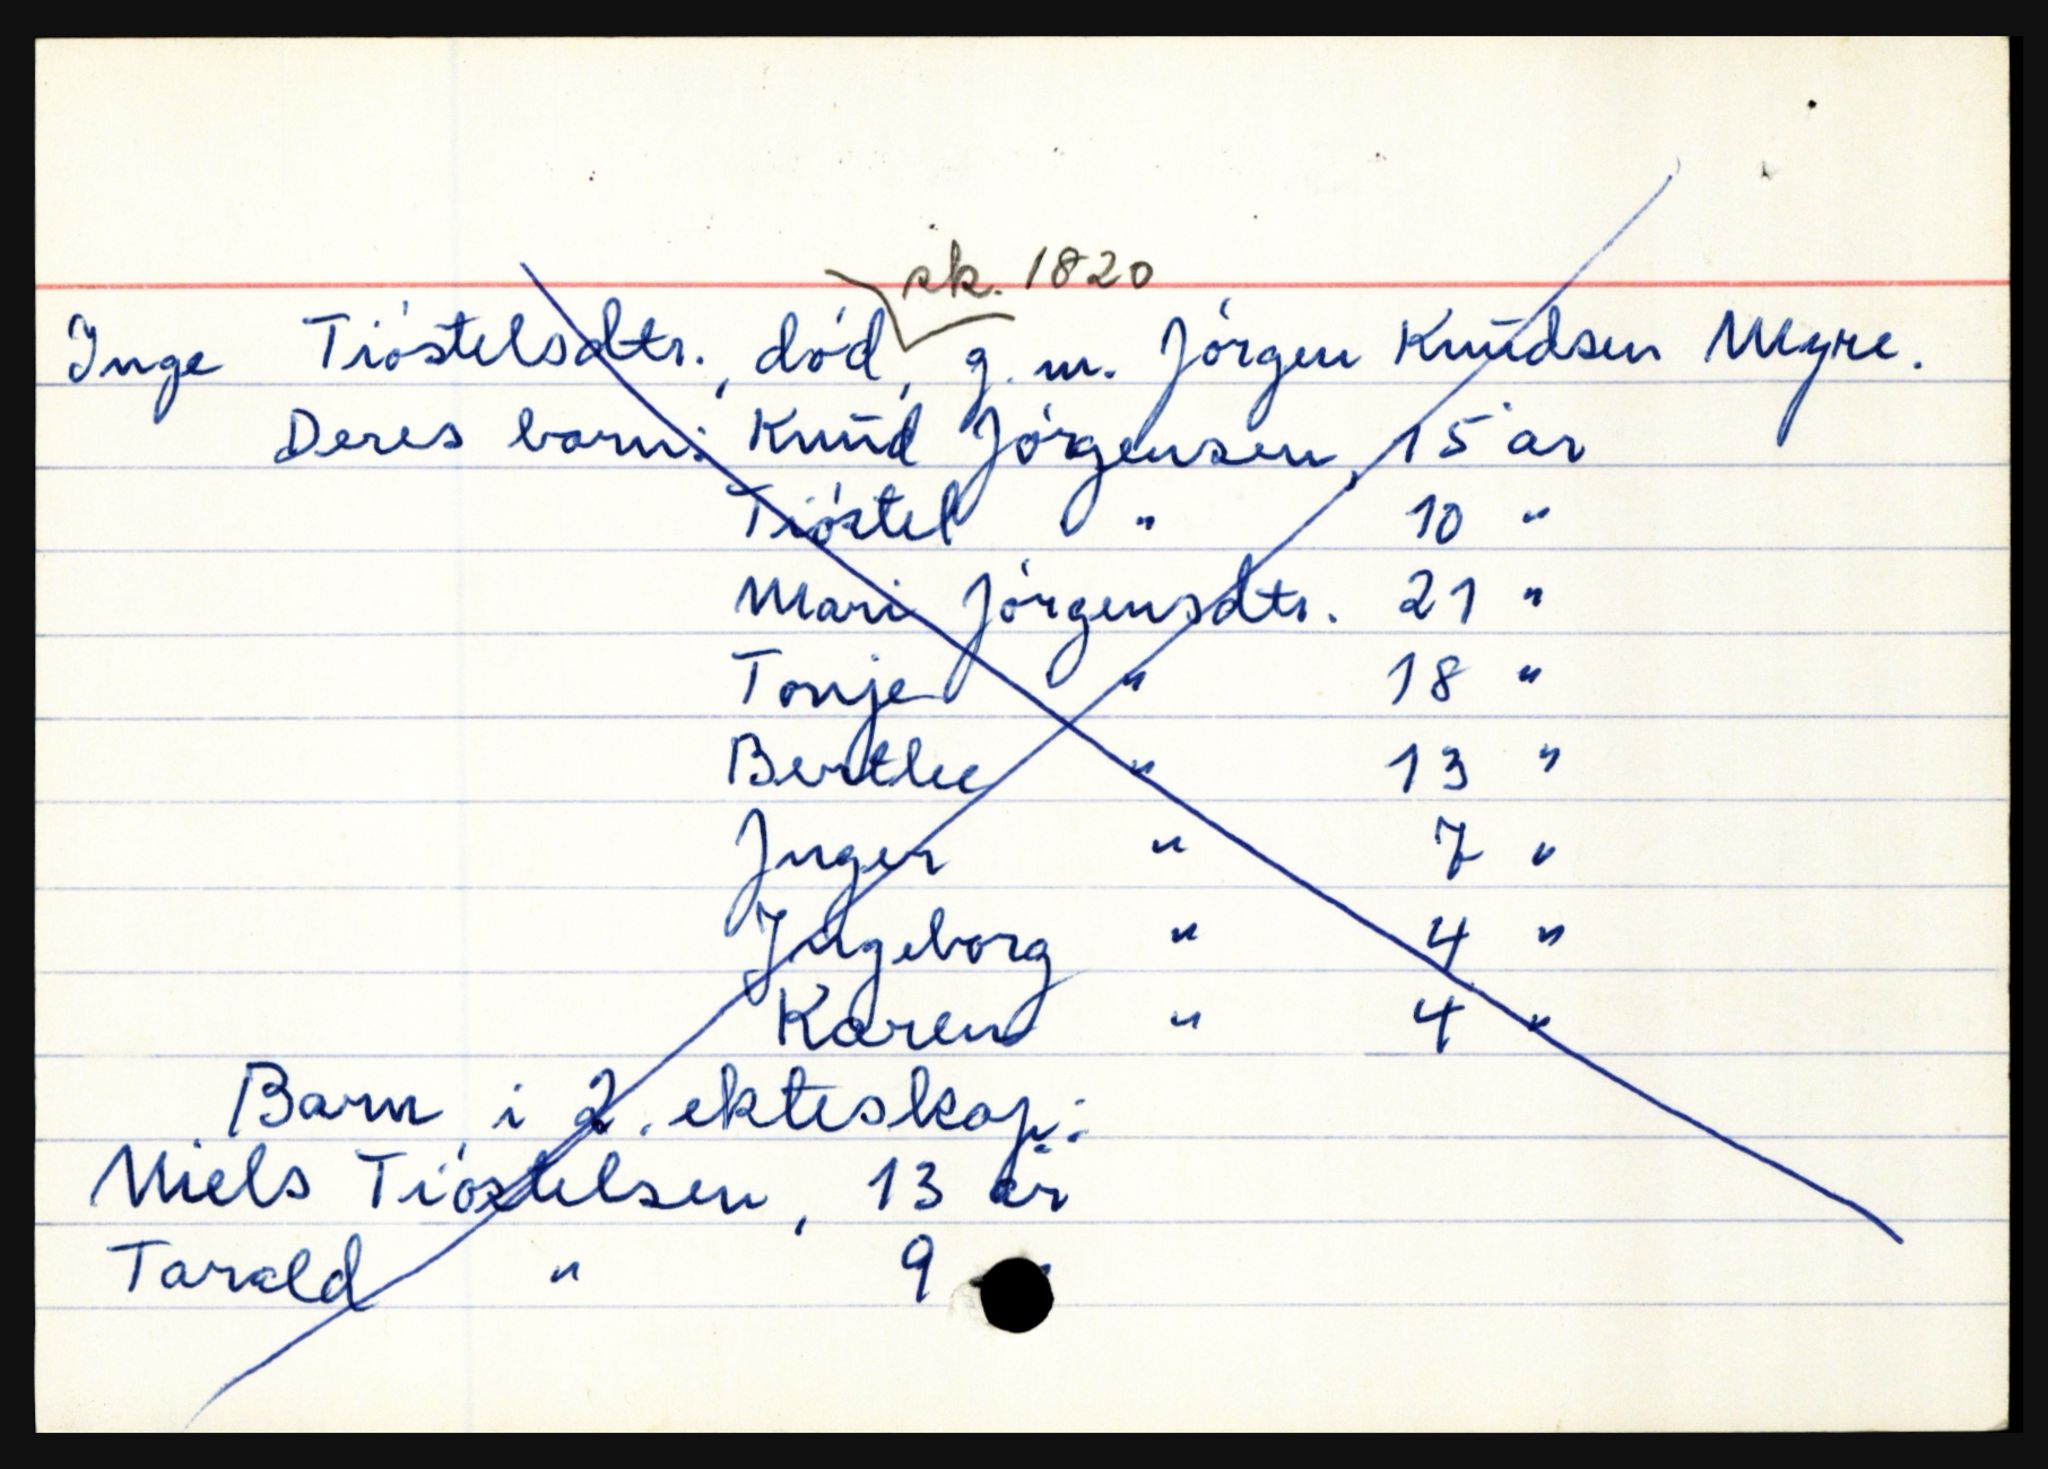 sk. 1820
Inge Tióstelsdtr., dód, g. m. Jórgen Knūdsen Myre.
Deres barn: Knūd Jórgensen, 15 år
Tióstel " 10 "
Mari Jórgensdtr. 21 "
Tonje " 18 "
Berthe " 13 "
Inger " 7 "
Ingeborg " 4 "
Karen " 4 "
Barn i 2. ekteskap:
Niels Tióstelsen, 13 år
Tarald " 9 "